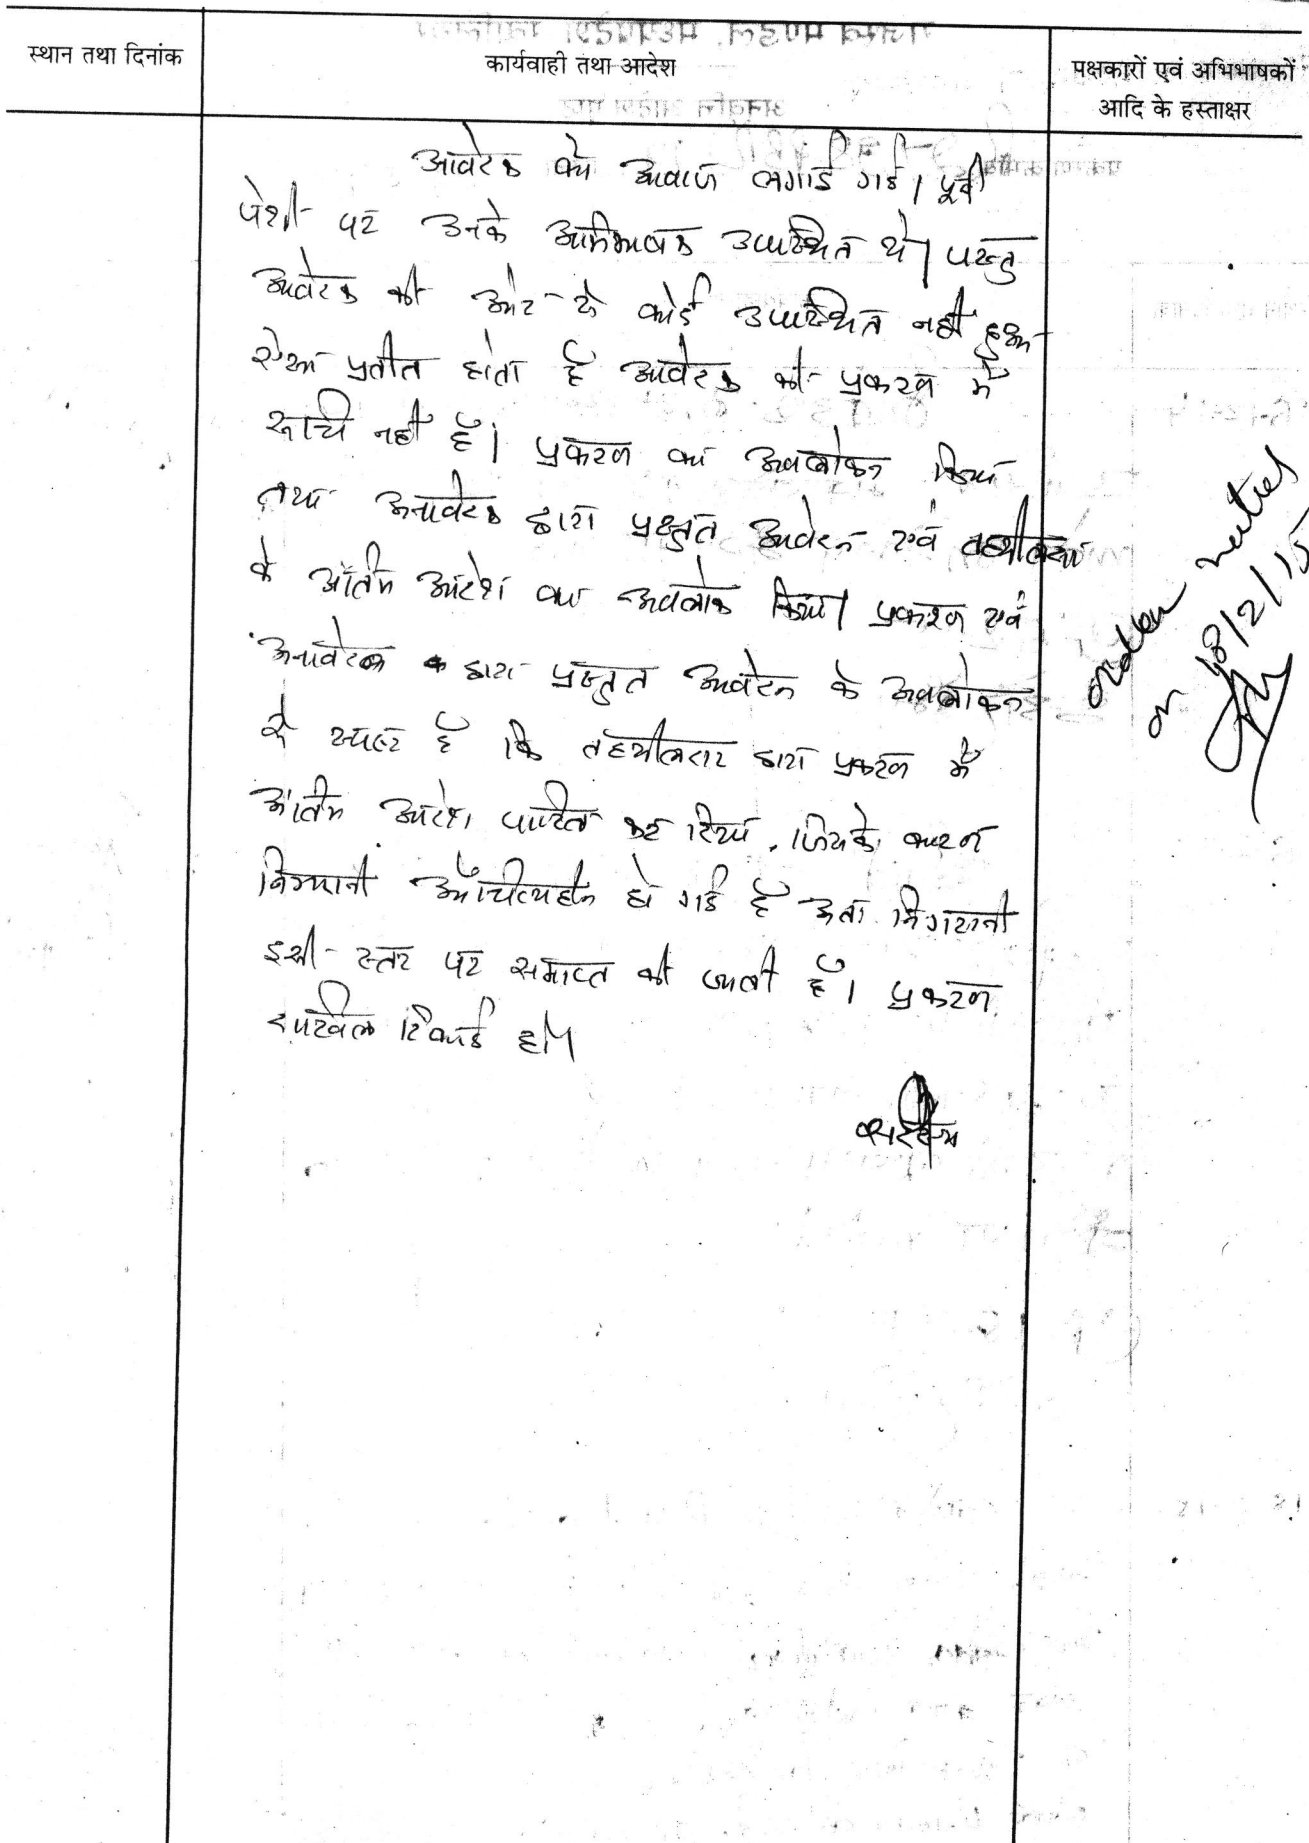 स्थान तथा दिनांक
कार्यवाही तथा आदेश
पक्षकारों एवं अभिभाषकों
आदि के हस्ताक्षर
आवेदक को आवाज लगाई गई। पूर्व
पेशी पर उनके अभिभाषक उपस्थित थे। परन्तु
आवेदक की ओर से कोई उपस्थित नहीं हुआ
ऐसा प्रतीत होता है आवेदक को प्रकरण में
रूचि नहीं है। प्रकरण का अवलोकन किया
तथा अनावेदक द्वारा प्रस्तुत आवेदन एवं तहसीलदार
के अंतिम आदेश का अवलोक किया। प्रकरण एवं
अनावेदक द्वारा प्रस्तुत आवेदन के अवलोकन
से स्पष्ट है कि तहसीलदार द्वारा प्रकरण में
अंतिम आदेश पारित कर दिया, जिसके कारण
निगरानी औचित्यहीन हो गई है अतः निगरानी
इसी स्तर पर समाप्त की जाती है। प्रकरण
दाखिल रिकार्ड हो।
सदस्य
order
on 18/2/15